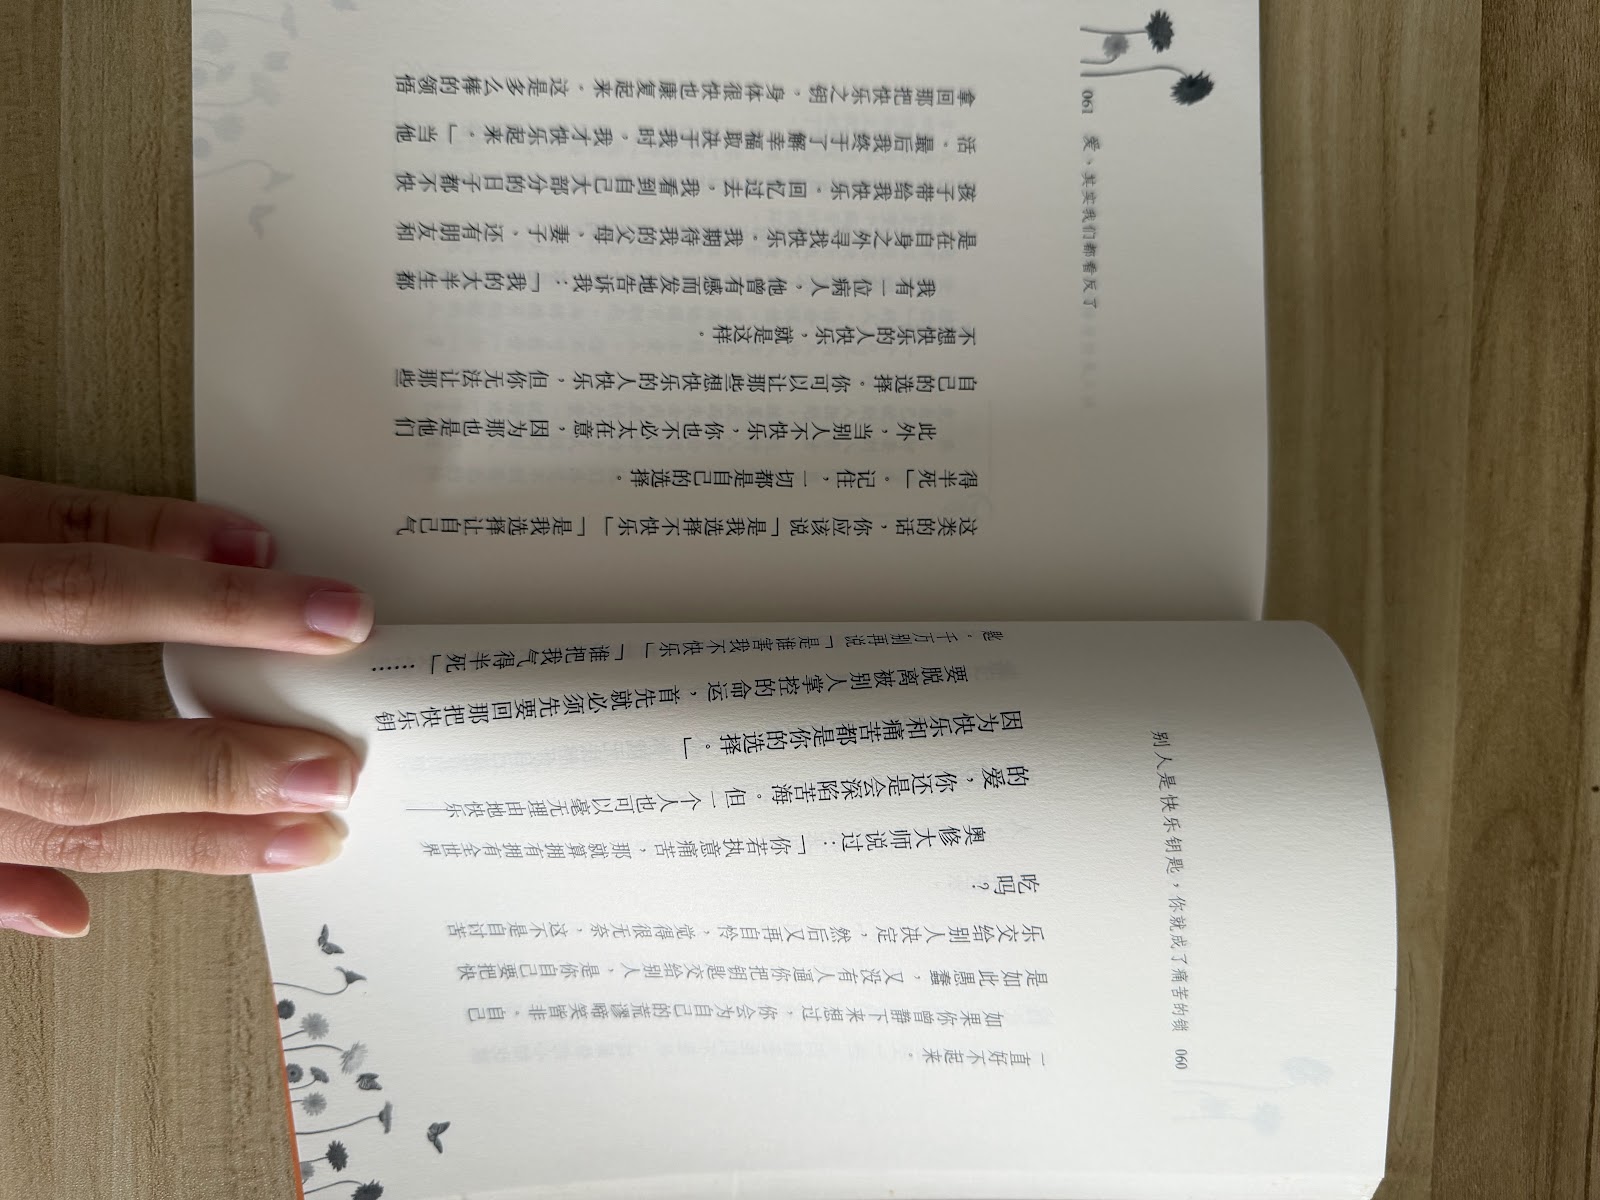 别人是快乐钥匙，你就成了痛苦的锁 060
一直好不起来。
如果你曾静下来想过，你会为自己的荒谬啼笑皆非。自己
是如此愚蠢，又没有人逼你把钥匙交给别人，是你自己要把快
乐交给别人决定，然后又再自怜，觉得很无奈，这不是自讨苦
吃吗？
奥修大师说过：「你若执意痛苦，那就算拥有拥有全世界
的爱，你还是会深陷苦海。但一个人也可以毫无理由地快乐——
因为快乐和痛苦都是你的选择。」
要脱离被别人掌控的命运，首先就必须先要回那把快乐钥
匙，千万别再说「是谁害我不快乐」「谁把我气得半死」……
061 爱、其实我们都看反了
这类的话，你应该说「是我选择不快乐」「是我选择让自己气
得半死」。记住，一切都是自己的选择。
此外，当别人不快乐，你也不必太在意，因为那也是他们
自己的选择。你可以让那些想快乐的人快乐，但你无法让那些
不想快乐的人快乐，就是这样。
我有一位病人，他曾有感而发地告诉我：「我的大半生都
是在自身之外寻找快乐。我期待我的父母、妻子、还有朋友和
孩子带给我快乐。回忆过去，我看到自己大部分的日子都不快
活。最后我终于了解幸福取决于我时，我才快乐起来。」当他
拿回那把快乐之钥，身体很快也康复起来。这是多么棒的领悟